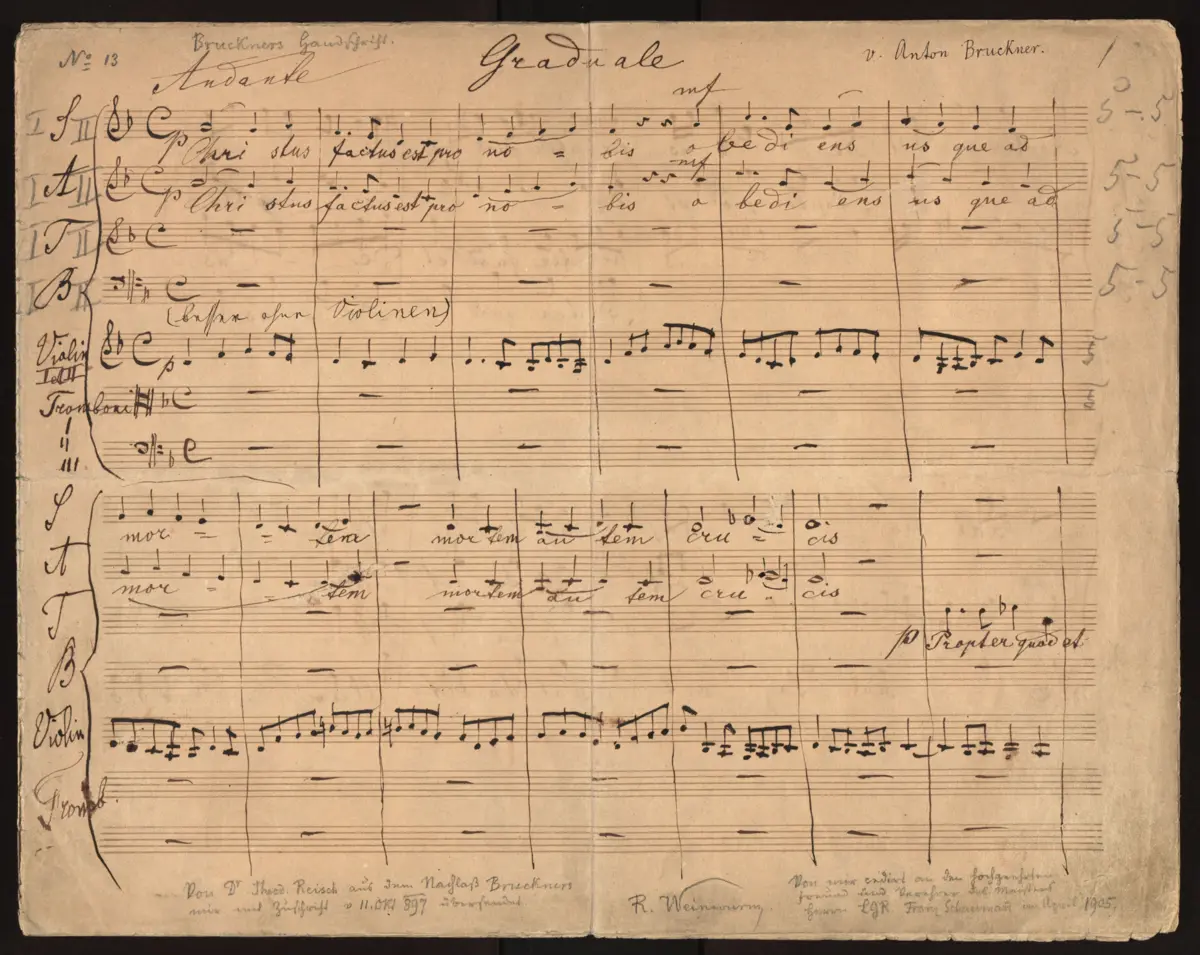 No 13
Bruckners Handschrift.
Andante
Graduale
v. Anton Bruckner.
1
mf
I S II
p Chri stus factus est pro no = bis o be di ens us que ad
5 - 5
mf
I A II
p Chri stus factus est pro no - bis o bedi ens us que ad
5 - 5
I T II
5 - 5
B
5 - 5
(besser ohne Violinen)
Violin
I et II
p
5
Tromboni
I
II
III
5
S
mor = = tem mor tem au tem cru = cis
A
mor = - tem mortem au tem cru - cis
T
p Propter quod et
B
Violin
Tromb.
Von Dr Theod. Reisch aus dem Nachlaß Bruckners
mir mit Zuschrift v 11. Okt 897 übersendet
R. Weinwurm
Von mir cedirt an den hochgeehrten
Freund und Verehrer des Meisters
Herrn LGR. Franz Schaumann im April 1905.